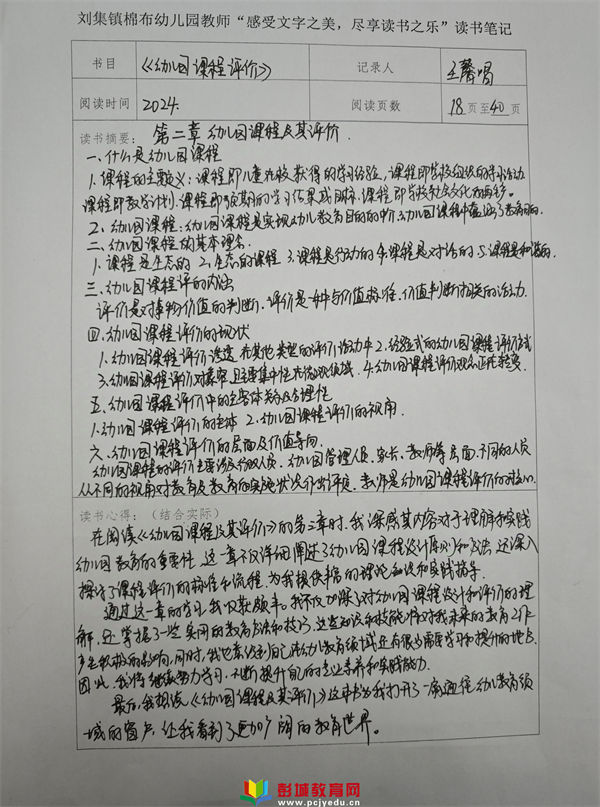 刘集镇棉布幼儿园教师“感受文字之美，尽享读书之乐”读书笔记
书目 《幼儿园课程评价》 记录人 王馨唱
阅读时间 2024. 阅读页数 18页至40页
读书摘要： 第二章 幼儿园课程及其评价.
一、什么是幼儿园课程
1.课程的主要义：课程即儿童在校获得的学习经验，课程即学校组织的学习活动
课程即教学计划.课程即预期的学习结果或目标.课程即学校
2、幼儿园课程：幼儿园课程是实现幼儿教育目的的中介.幼儿园课程中蕴涵了教育目的.
二、幼儿园课程的基本理念.
1.课程是生态的 2、生态的课程 3.课程是行动的 4.课程是对话的 5.课程是和谐的.
三、幼儿园课程评的内涵
评价是对事物价值的判断.评价是一种与价值 价值判断相关的活动.
四、幼儿园课程评价的现状
1.幼儿园课程评价渗透在其他类型的评价活动中 2.经验式的幼儿园课程评价方式
3.幼儿园课程评价对象窄且主要集中在微观领域. 4.幼儿园课程评价观念正在转变.
五、幼儿园课程评价中的主客体关系及合理性
1.幼儿园课程评价的主体 2.幼儿园课程评价的视角.
六、幼儿园课程评价的层面及价值导向.
幼儿园课程的评价主要涉及行政人员、幼儿园管理人员、家长、教师等层面.不同的人员
从不同的视角对教育及教育的实施状况作出评定.教师是幼儿园课程评价的核心.
读书心得：（结合实际）
在阅读《幼儿园课程及其评价》的第二章时.我深感其内容对于理解和实践
幼儿园教育的重要性.这一章不仅详细阐述了幼儿园课程设计原则和方法.还深入
探讨了课程评价的标准和流程.为我提供丰富的理论知识和实践指导.
通过这一章的学习.我收获颇丰.我不仅加深了对幼儿园课程设计和评价的理
解.还掌握了一些实用的教育方法和技巧.这些知识和技能将对我未来的教育工作
产生积极的影响.同时.我也意识到自己在幼儿教育领域还有很多需要学习和提升的地方.
因此.我将继续努力学习.不断提升自己的专业素养和实践能力.
最后.我想说《幼儿园课程及其评价》这本书为我打开了一扇通往幼儿教育领
域的窗户.让我看到了更加广阔的教育世界。
彭城教育网
www.pcjyedu.cn